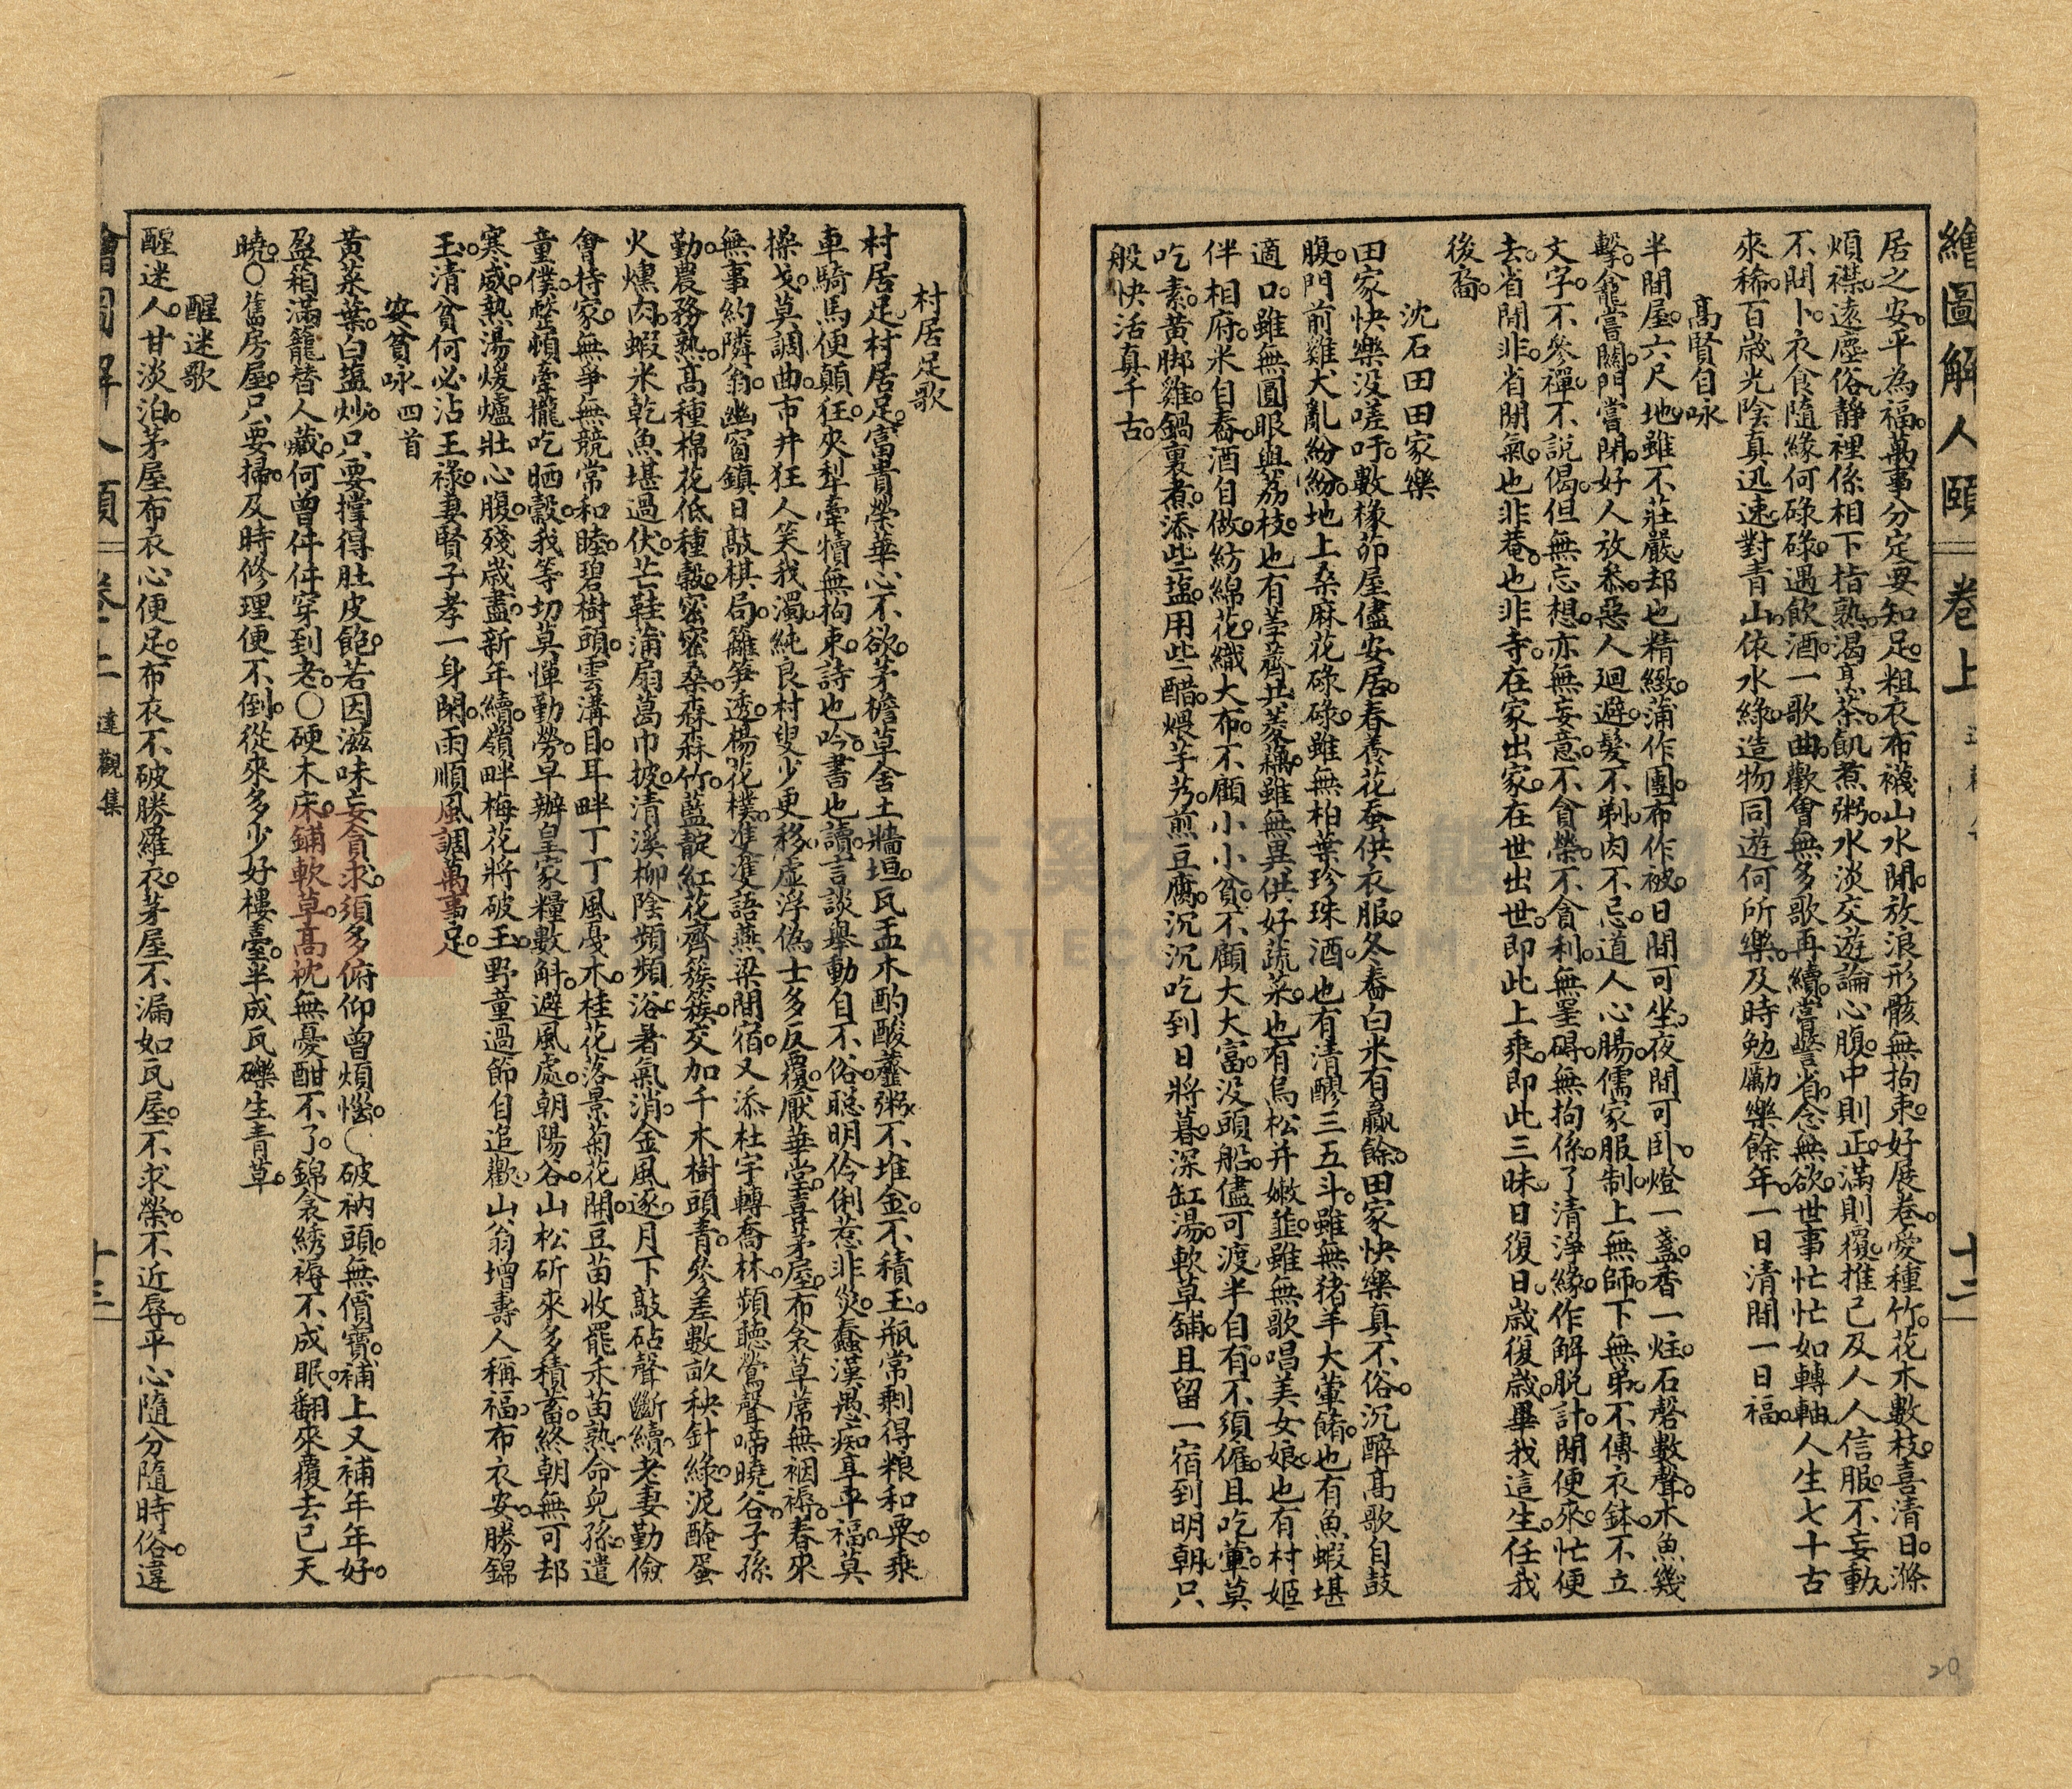 繪圖解人頤 卷上 十二
居之安。平為福。萬事分定要知足。粗衣布襪山水間。放浪形骸無拘束。好展卷。愛種竹。花木數枝。喜清日。滌
煩襟。遠塵俗。靜裡係相下指熟。渴烹茶。飢煮粥。水淡交遊論心腹。中則正。滿則覆。推己及人人信服。不妄動。
不問卜。衣食隨緣何碌碌。遇飲酒。一歌曲。歡會無多歌再續。嘗警省。念無欲。世事忙忙如轉軸。人生七十古
來稀。百歲光陰真迅速。對青山。依水綠。造物同遊何所樂。及時勉勵樂餘年。一日清閒一日福。
高賢自咏
半間屋。六尺地。雖不莊嚴。却也精緻。蒲作團。布作被。日間可坐。夜間可卧。燈一盞。香一炷。石磬數聲。木魚幾
擊。龕嘗關。門嘗閉。好人放參。惡人廻避。髮不剃。肉不忌。道人心腸。儒家服制。上無師。下無弟。不傳衣鉢。不立
文字。不參禪。不說偈。但無忘想。亦無妄意。不貪榮。不貪利。無罣碍。無拘係。了清淨緣。作解脫計。閒便來。忙便
去。省閒非。省閒氣。也非菴。也非寺。在家出家。在世出世。即此上乘。即此三昧。日復日。歲復歲。畢我這生。任我
後裔。
沈石田田家樂
田家快樂没嗟吁。數椽茆屋儘安居。春養花蚕供衣服。冬舂白米有贏餘。田家快樂真不俗。沉醉高歌自鼓
腹。門前雞犬亂紛紛。地上桑麻花碌碌。雖無柏葉珍珠酒。也有清醪三五斗。雖無猪羊大葷餚。也有魚蝦堪
適口。雖無圓眼與荔枝。也有荸薺共菱藕。雖無異供好蔬菜。也有烏松并嫩韮。雖無歌唱美女娘。也有村姬
伴相府。米自舂。酒自做。紡綿花。織大布。不顧小小貧。不顧大大富。没頭船。儘可渡。半自有。不須僱。且吃葷。莫
吃素。黄脚雞。鍋裏煮。添些盬。用些醋。煨芋艿。煎豆腐。沉沉吃到日將暮。深缸湯。軟草舖。且留一宿到明朝。只
般快活真千古。
村居足歌
村居足。村居足。富貴榮華心不欲。茅檐草舍土牆垣。瓦盂木酌酸虀粥。不堆金。不積玉。瓶常剩得粮和粟。乘
車騎馬便顛狂。夾犁牽犢無拘束。詩也吟。書也讀。言談舉動自不俗。聰明伶俐惹非災。蠢漢愚痴享平福。莫
操戈。莫調曲。市井狂人笑我濁。純良村叟少更移。虛浮偽士多反覆。厭華堂。喜茅屋。布衾草蓆無裀褥。春來
無事約隣翁。幽窗鎮日敲棋局。籬笋透。楊花撲。隻隻語燕梁間宿。又添杜宇轉喬林。頻聽鶯聲啼曉谷。子孫
勤。農務熟。高種棉花低種穀。密密桑。森森竹。藍靛紅花齊簇簇。交加千木樹頭青。參差數畝秧針綠。泥醃蛋
火燻肉。蝦米乾魚堪過伏。芒鞋蒲扇葛巾披。清溪柳陰頻頻浴。暑氣消。金風逐。月下敲砧聲斷續。老妻勤儉
會持家。無爭無競常和睦。碧樹頭。雲溝目。耳畔丁丁風戛木。桂花落景菊花開。豆苗收罷禾苗熟。命兒孫。遣
童僕。整頓牽攏吃晒穀。我等切莫憚勤勞。早辦皇家糧數斛。避風處。朝陽谷。山松斫來多積蓄。終朝無可却
寒威。熱湯煖爐壯心腹。殘歲盡。新年續。嶺畔梅花將破玉。野童過節自追歡。山翁增壽人稱福。布衣安。勝錦
玉。清貧何必沾王祿。妻賢子孝一身閑。雨順風調萬事足。
安貧咏四首
黄菜葉。白盬炒。只要撑得肚皮飽。若因滋味妄貪求。須多俯仰曾煩惱。○破衲頭。無價寶。補上又補年年好。
盈箱滿籠替人藏。何曾件件穿到老。○硬木床。鋪軟草。高枕無憂酣不了。錦衾綉褥不成眠。翻來覆去已天
曉。○舊房屋。只要掃。及時修理便不倒。從來多少好樓臺。半成瓦礫生青草。
醒迷歌
醒迷人。甘淡泊。茅屋布衣心便足。布衣不破勝羅衣。茅屋不漏如瓦屋。不求榮。不近辱。平心隨分隨時俗。違
繪圖解人頤 卷上 達觀集 十三
20